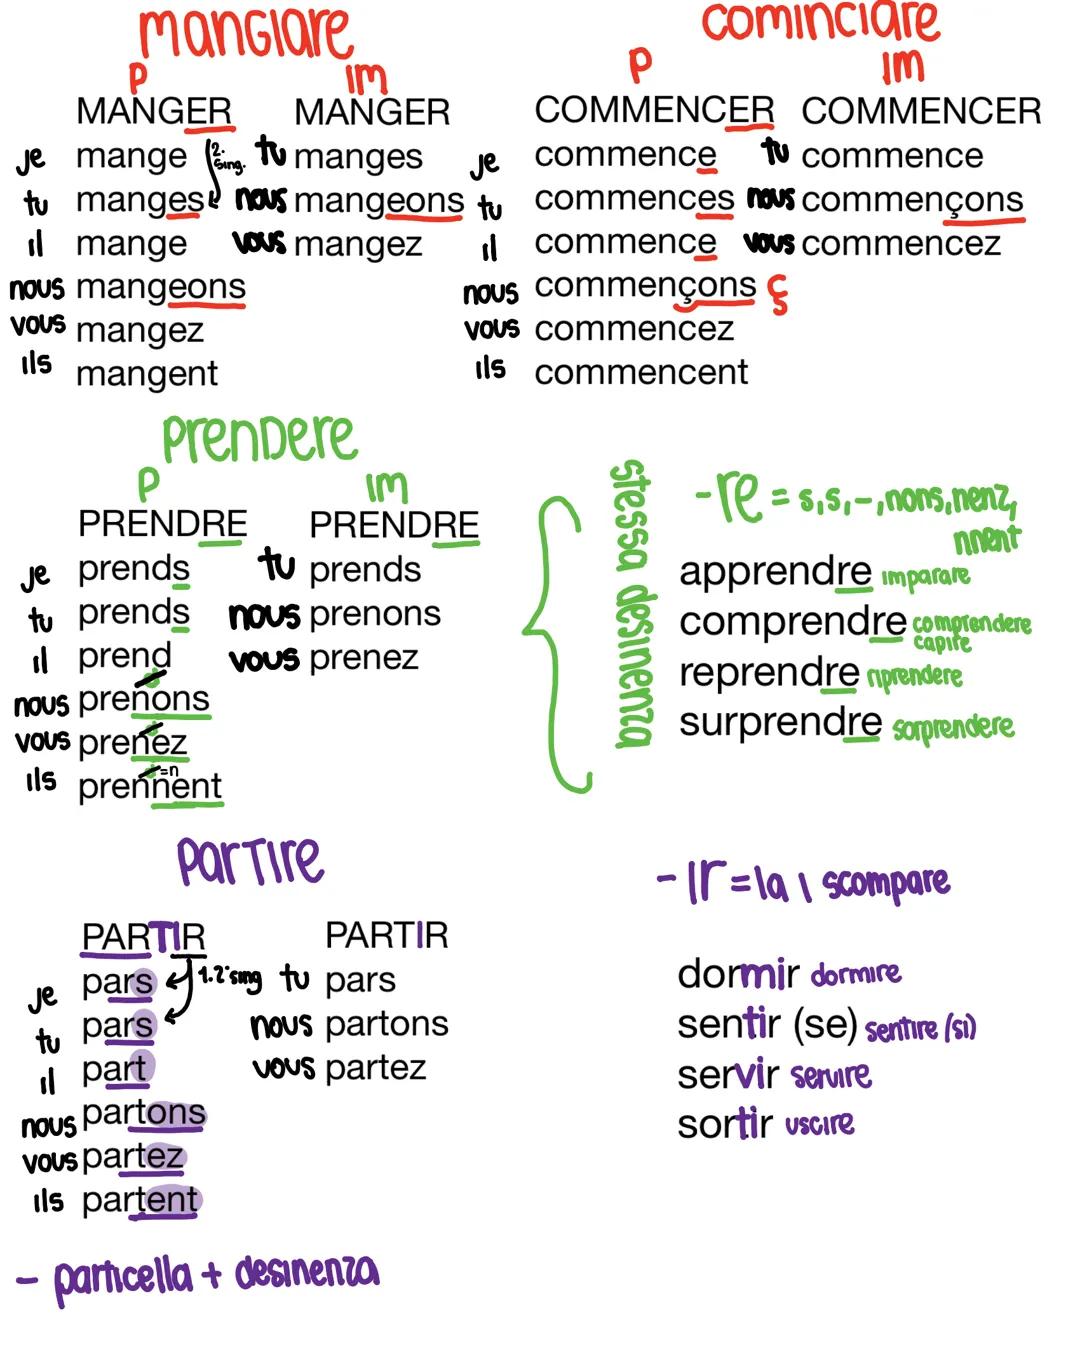 mangiare
P IM
MANGER MANGER
je mange 2. sing. tu manges
tu manges nous mangeons
il mange vous mangez
nous mangeons
vous mangez
ils mangent
cominciare
P IM
COMMENCER COMMENCER
je commence tu commence
tu commences nous commençons
il commence vous commencez
nous commençons ç
vous commencez
ils commencent
prendere
P IM
PRENDRE PRENDRE
je prends tu prends
tu prends nous prenons
il prend vous prenez
nous prenons
vous prenez
ils prennent =n
stessa desinenza
-re = s,s,-,nons,nenz,
nnent
apprendre imparare
comprendre comprendere
capire
reprendre riprendere
surprendre sorprendere
partire
PARTIR PARTIR
je pars 1.2°sing tu pars
tu pars nous partons
il part vous partez
nous partons
vous partez
ils partent
- particella + desinenza
-ir = la i scompare
dormir dormire
sentir (se) sentire (si)
servir servire
sortir uscire